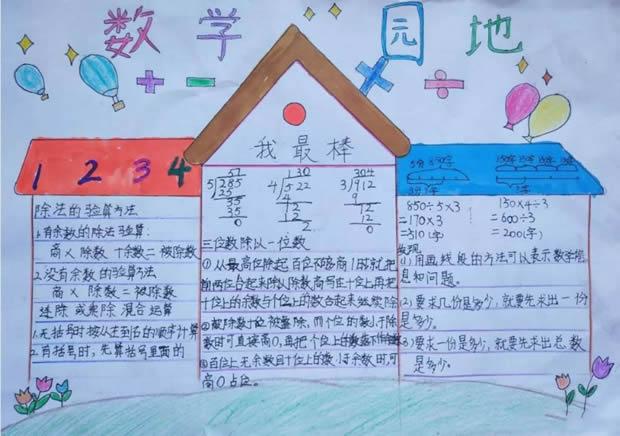 数学园地
+ - × ÷
1 2 3 4
除法的验算方法
1.有余数的除法验算:
商×除数+余数=被除数
2.没有余数的验算方法
商×除数=被除数
连除 或乘除 混合运算
1.无括号时按从左到右的顺序计算
2.有括号时,先算括号里面的
我最棒
57
5 285
25
35
35
0
130
4 522
4
12
12
2
304
3 912
9
12
12
0
三位数除以一位数
①从最高位除起 百位不够商1时就把
前两位合起来除以除数商写在十位上再把
十位上的余数与个位上的数合起来继续除
②被除数十位被整除,而个位的数小于除
数时可直接商0,再把个位上的数落下作余数
③百位上无余数且十位上的数小于余数时,可
商0占位。
850÷5×3
=170×3
=510(字)
150×4÷3
=600÷3
=200(字)
发现
(1)用画线段的方法可以表示数学信
息和问题。
(2)要求几份是多少,就要先求出一份
是多少。
(3)要求一份是多少,就要先求出总数
是多少。